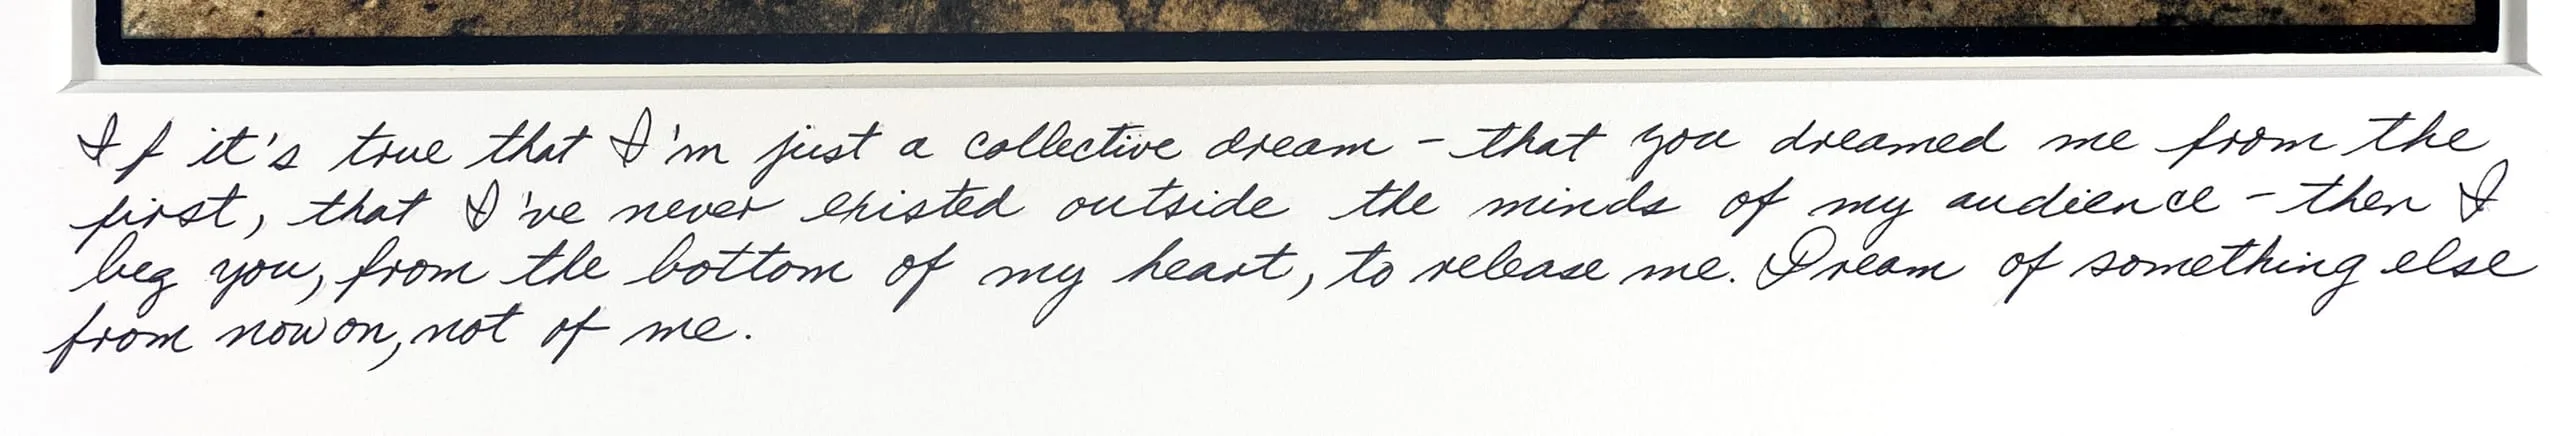 If it's true that I'm just a collective dream - that you dreamed me from the
first, that I've never existed outside the minds of my audience - then I
beg you, from the bottom of my heart, to release me. Dream of something else
from now on, not of me.